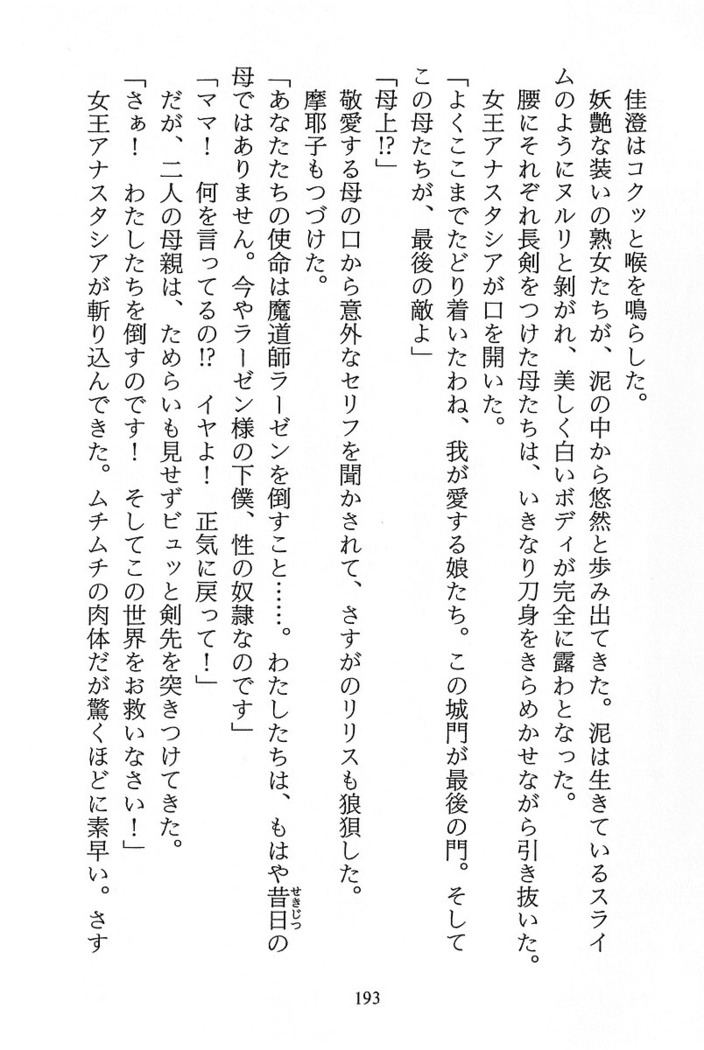 佳澄はコクッと喉を鳴らした。
妖艶な装いの熟女たちが、泥の中から悠然と歩み出てきた。泥は生きているスライ
ムのようにヌルリと剝がれ、美しく白いボディが完全に露わとなった。
腰にそれぞれ長剣をつけた母たちは、いきなり刀身をきらめかせながら引き抜いた。
女王アナスタシアが口を開いた。
「よくここまでたどり着いたわね、我が愛する娘たち。この城門が最後の門。そして
この母たちが、最後の敵よ」
「母上!?」
敬愛する母の口から意外なセリフを聞かされて、さすがのリリスも狼狽した。
摩耶子もつづけた。
「あなたたちの使命は魔道師ラーゼンを倒すこと……。わたしたちは、もはや昔日の
せきじつ
母ではありません。今やラーゼン様の下僕、性の奴隷なのです」
「ママ！　何を言ってるの!?　イヤよ！　正気に戻って！」
だが、二人の母親は、ためらいも見せずビュッと剣先を突きつけてきた。
「さぁ！　わたしたちを倒すのです！　そしてこの世界をお救いなさい！」
女王アナスタシアが斬り込んできた。ムチムチの肉体だが驚くほどに素早い。さす
193